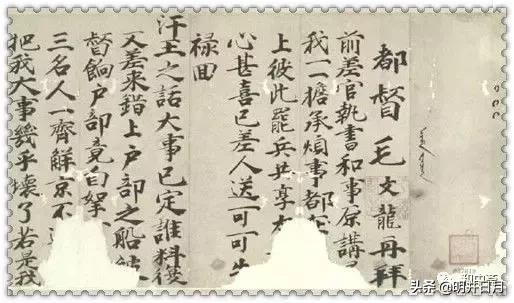 都督毛文龍再拜
前差官執書和事原講
我一一擔承煩事都在
上彼此罷兵共享太
心甚喜已差人送可可生
祿回
汗王之話大事已定誰料後
又差來錯上戶部之船被
督餉戶部竟自拏
三名人一齊解京不
把我大事幾乎壞了若是我
头条 @明井日月